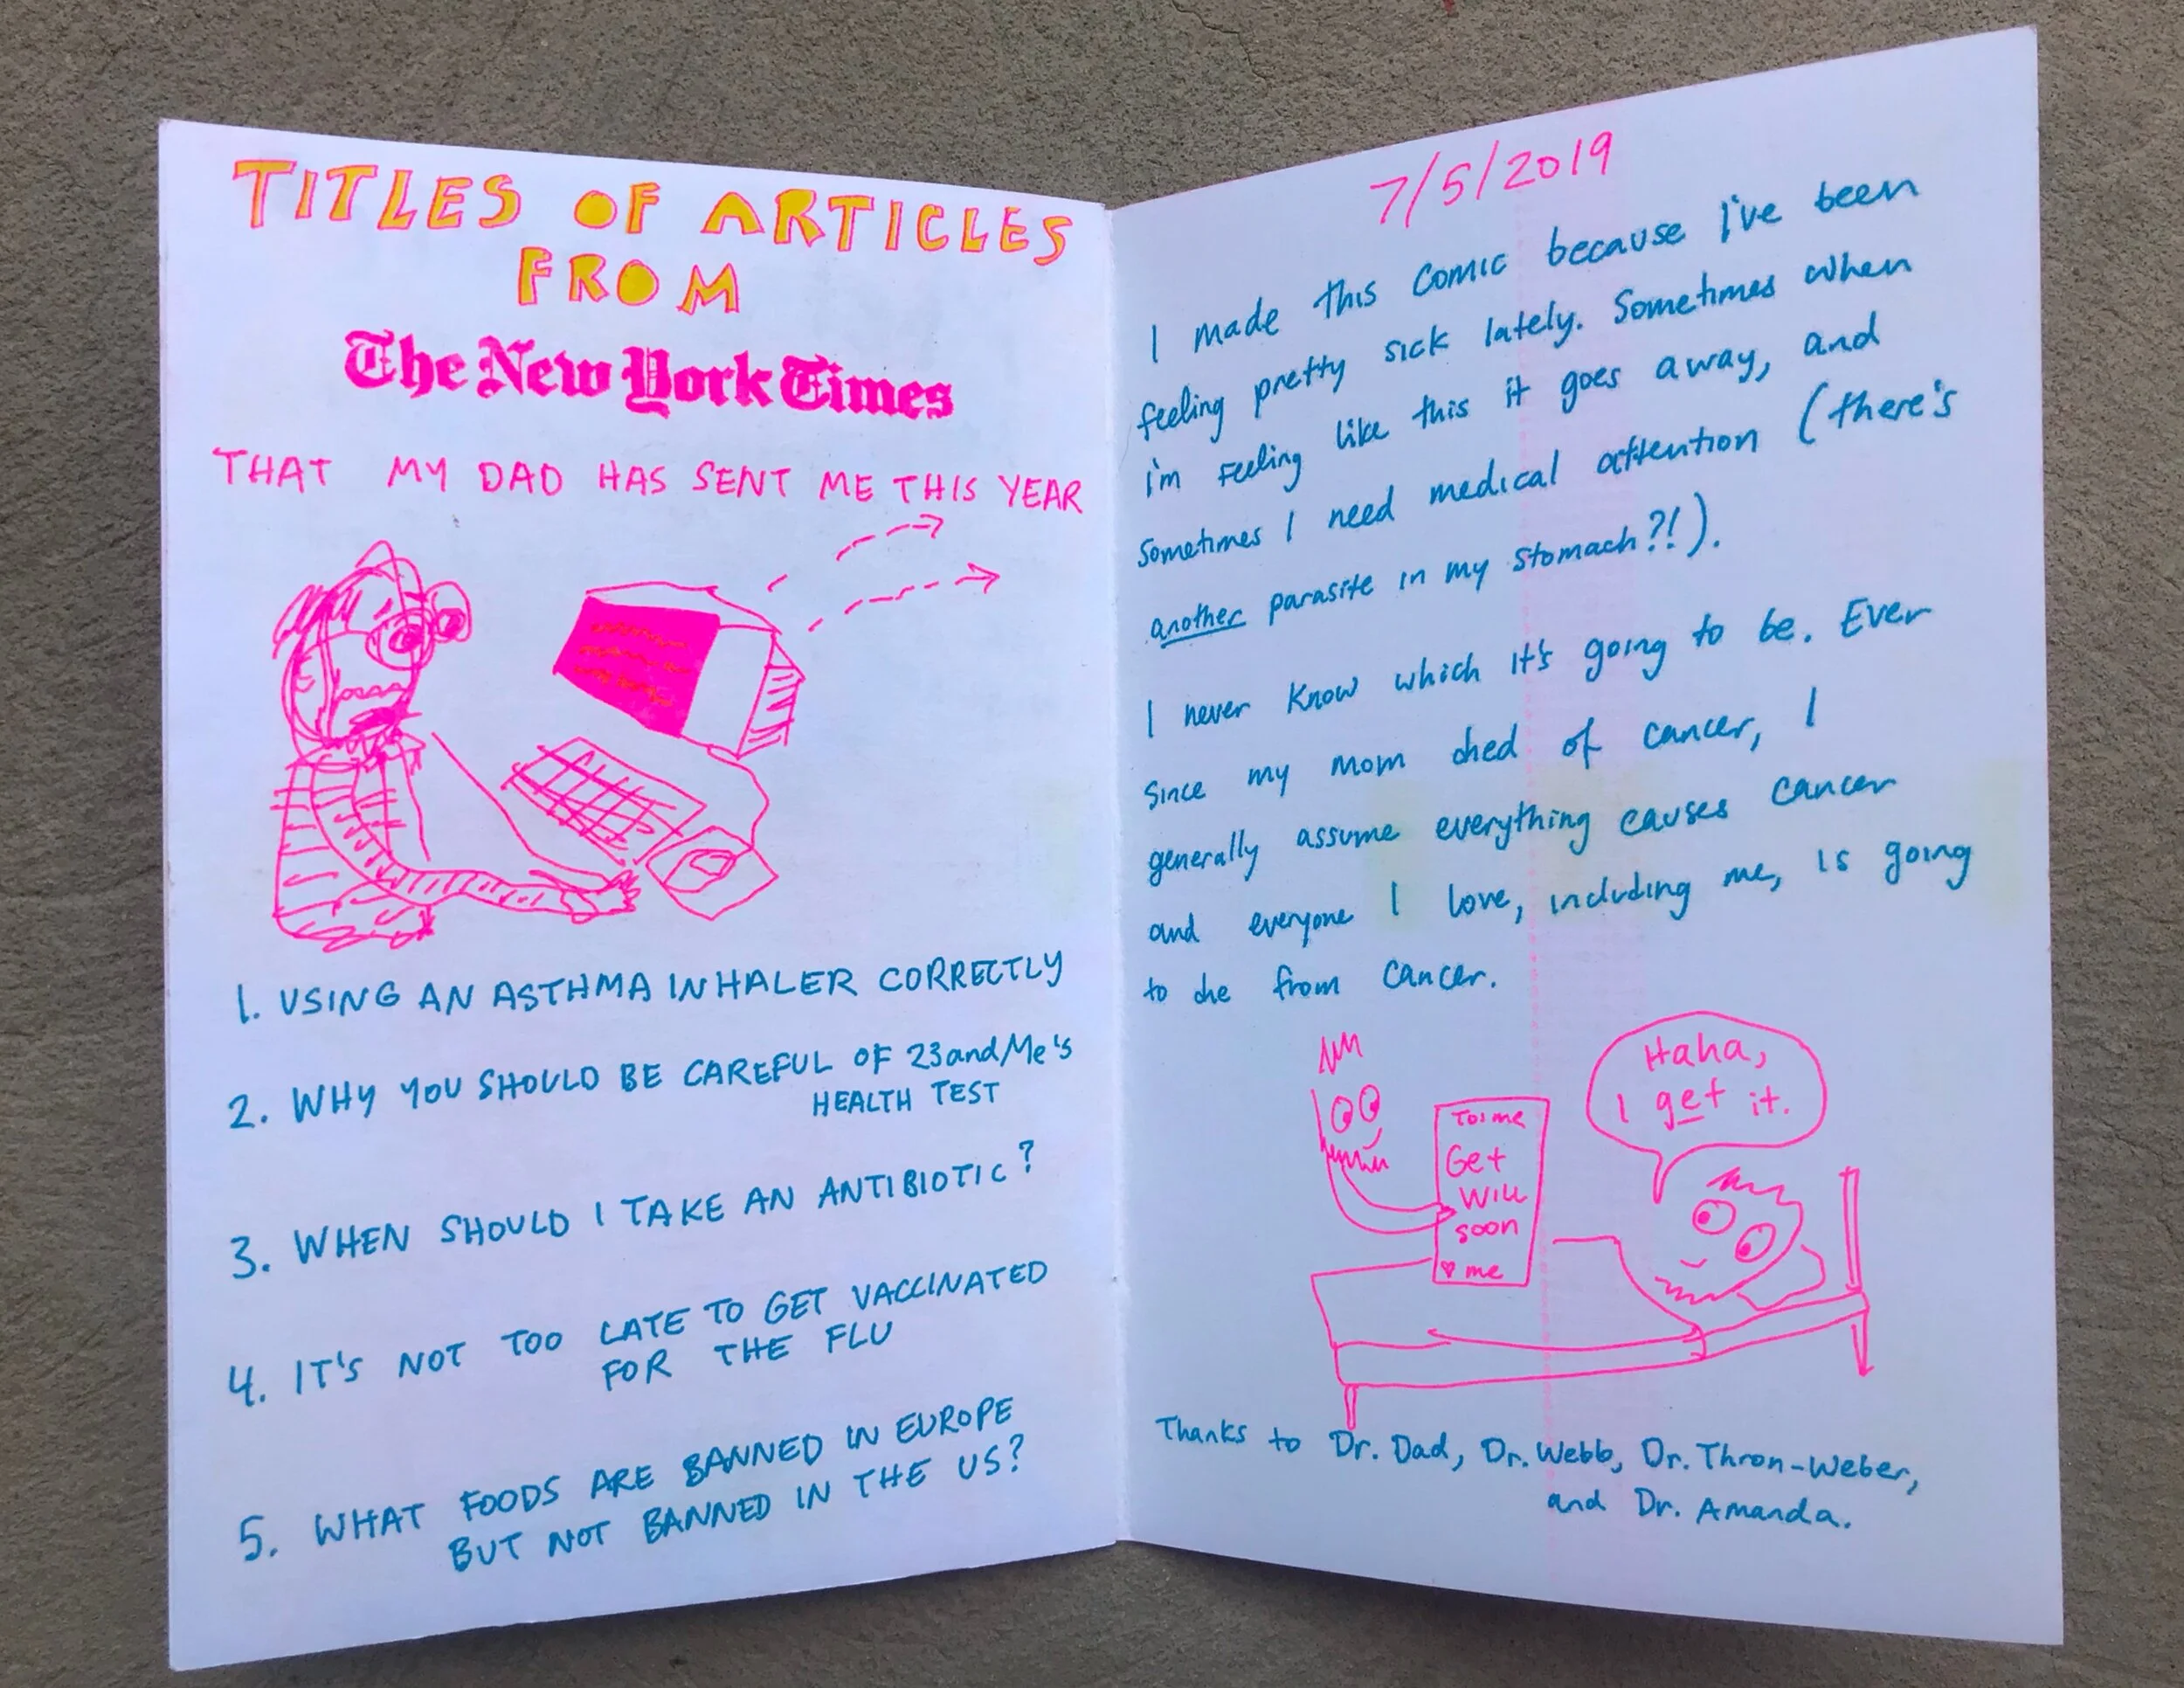 TITLES OF ARTICLES
FROM
The New York Times
THAT MY DAD HAS SENT ME THIS YEAR
1. USING AN ASTHMA INHALER CORRECTLY
2. WHY YOU SHOULD BE CAREFUL OF 23andMe's
HEALTH TEST
3. WHEN SHOULD I TAKE AN ANTIBIOTIC?
4. IT'S NOT TOO LATE TO GET VACCINATED
FOR THE FLU
5. WHAT FOODS ARE BANNED IN EUROPE
BUT NOT BANNED IN THE US?
7/5/2019
I made this comic because I've been
feeling pretty sick lately. Sometimes when
i'm feeling like this it goes away, and
sometimes I need medical attention (there's
another parasite in my stomach?!).
I never know which it's going to be. Ever
since my mom died of cancer, I
generally assume everything causes cancer
and everyone I love, including me, is going
to die from cancer.
Haha,
I get it.
To: me
Get
Will
soon
♡ me
Thanks to Dr. Dad, Dr. Webb, Dr. Thron-Weber,
and Dr. Amanda.